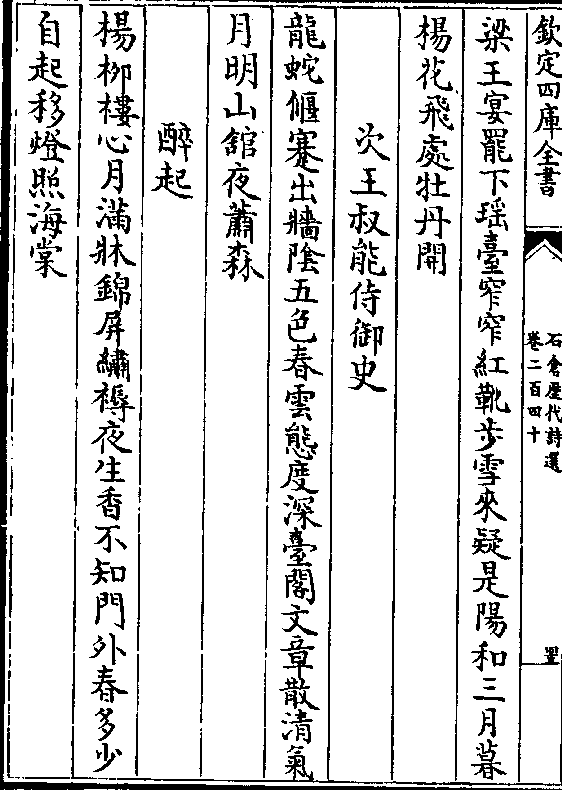 欽定四庫全書
石倉歷代詩選
卷二百四十
梁王宴罷下瑶臺窄窄紅靴步雪來疑是陽和三月暮
楊花飛處牡丹開
次王叔能侍御史
龍蛇偃蹇出牆陰五色春雲態度深臺閣文章散清氣
月明山舘夜蕭森
醉起
楊栁樓心月滿牀錦屏繡褥夜生香不知門外春多少
自起移燈照海棠